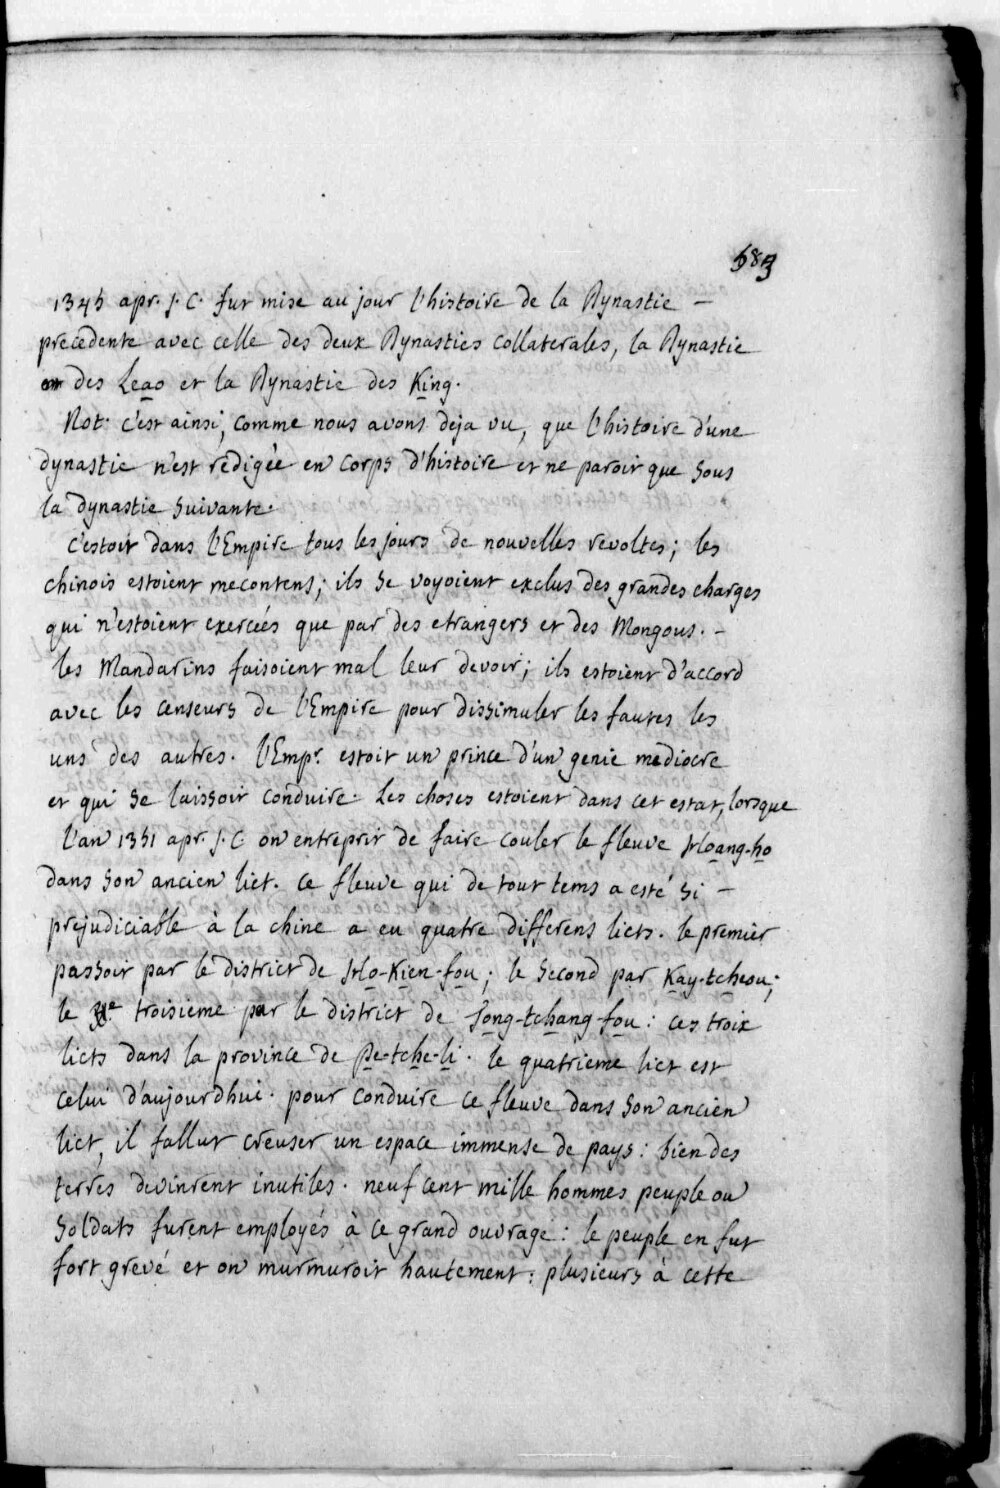 583
1345 apr. J. C. fut mise au jour l'histoire de la Dynastie –
precedente avec celle des deux Dynasties collaterales, la Dynastie
des Leao et la Dynastie des King.
Not. c'est ainsi, comme nous avons deja vu, que l'histoire d'une
dynastie n'est redigée en corps d'histoire et ne paroit que sous
la dynastie suivante.
C'estoit dans l'Empire tous les jours de nouvelles revoltes; les
chinois estoient mecontens; ils se voyoient exclus des grandes charges
qui n'estoient exercées que par des etrangers et des Mongous. –
les Mandarins faisoient mal leur devoir; ils estoient d'accord
avec les censeurs de l'Empire pour dissimuler les fautes les
uns des autres. l'Empr. estoit un prince d'un genie mediocre
et qui se laissoit conduire. Les choses estoient dans cet estat, lorsque
l'an 1351 apr. J. C on entreprit de faire couler le fleuve Hoang-ho
dans son ancien lict. ce fleuve qui de tout tems a esté si –
prejudiciable à la chine a eu quatre differens licts. le premier
passoit par le district de Ho-Kien-fou; le second par Kay-tcheou;
le troisieme par le district de Tong-tchang-fou: ces troix
licts dans la province de Pe-tche-li. le quatrieme lict est
celui d'aujourdhui. pour conduire ce fleuve dans son ancien
lict, il fallut creuser un espace immense de pays: bien des
terres devinrent inutiles. neuf cent mille hommes peuple ou
soldats furent employés à ce grand ouvrage: le peuple en fut
fort grevé et on murmuroit hautement: plusieurs à cette